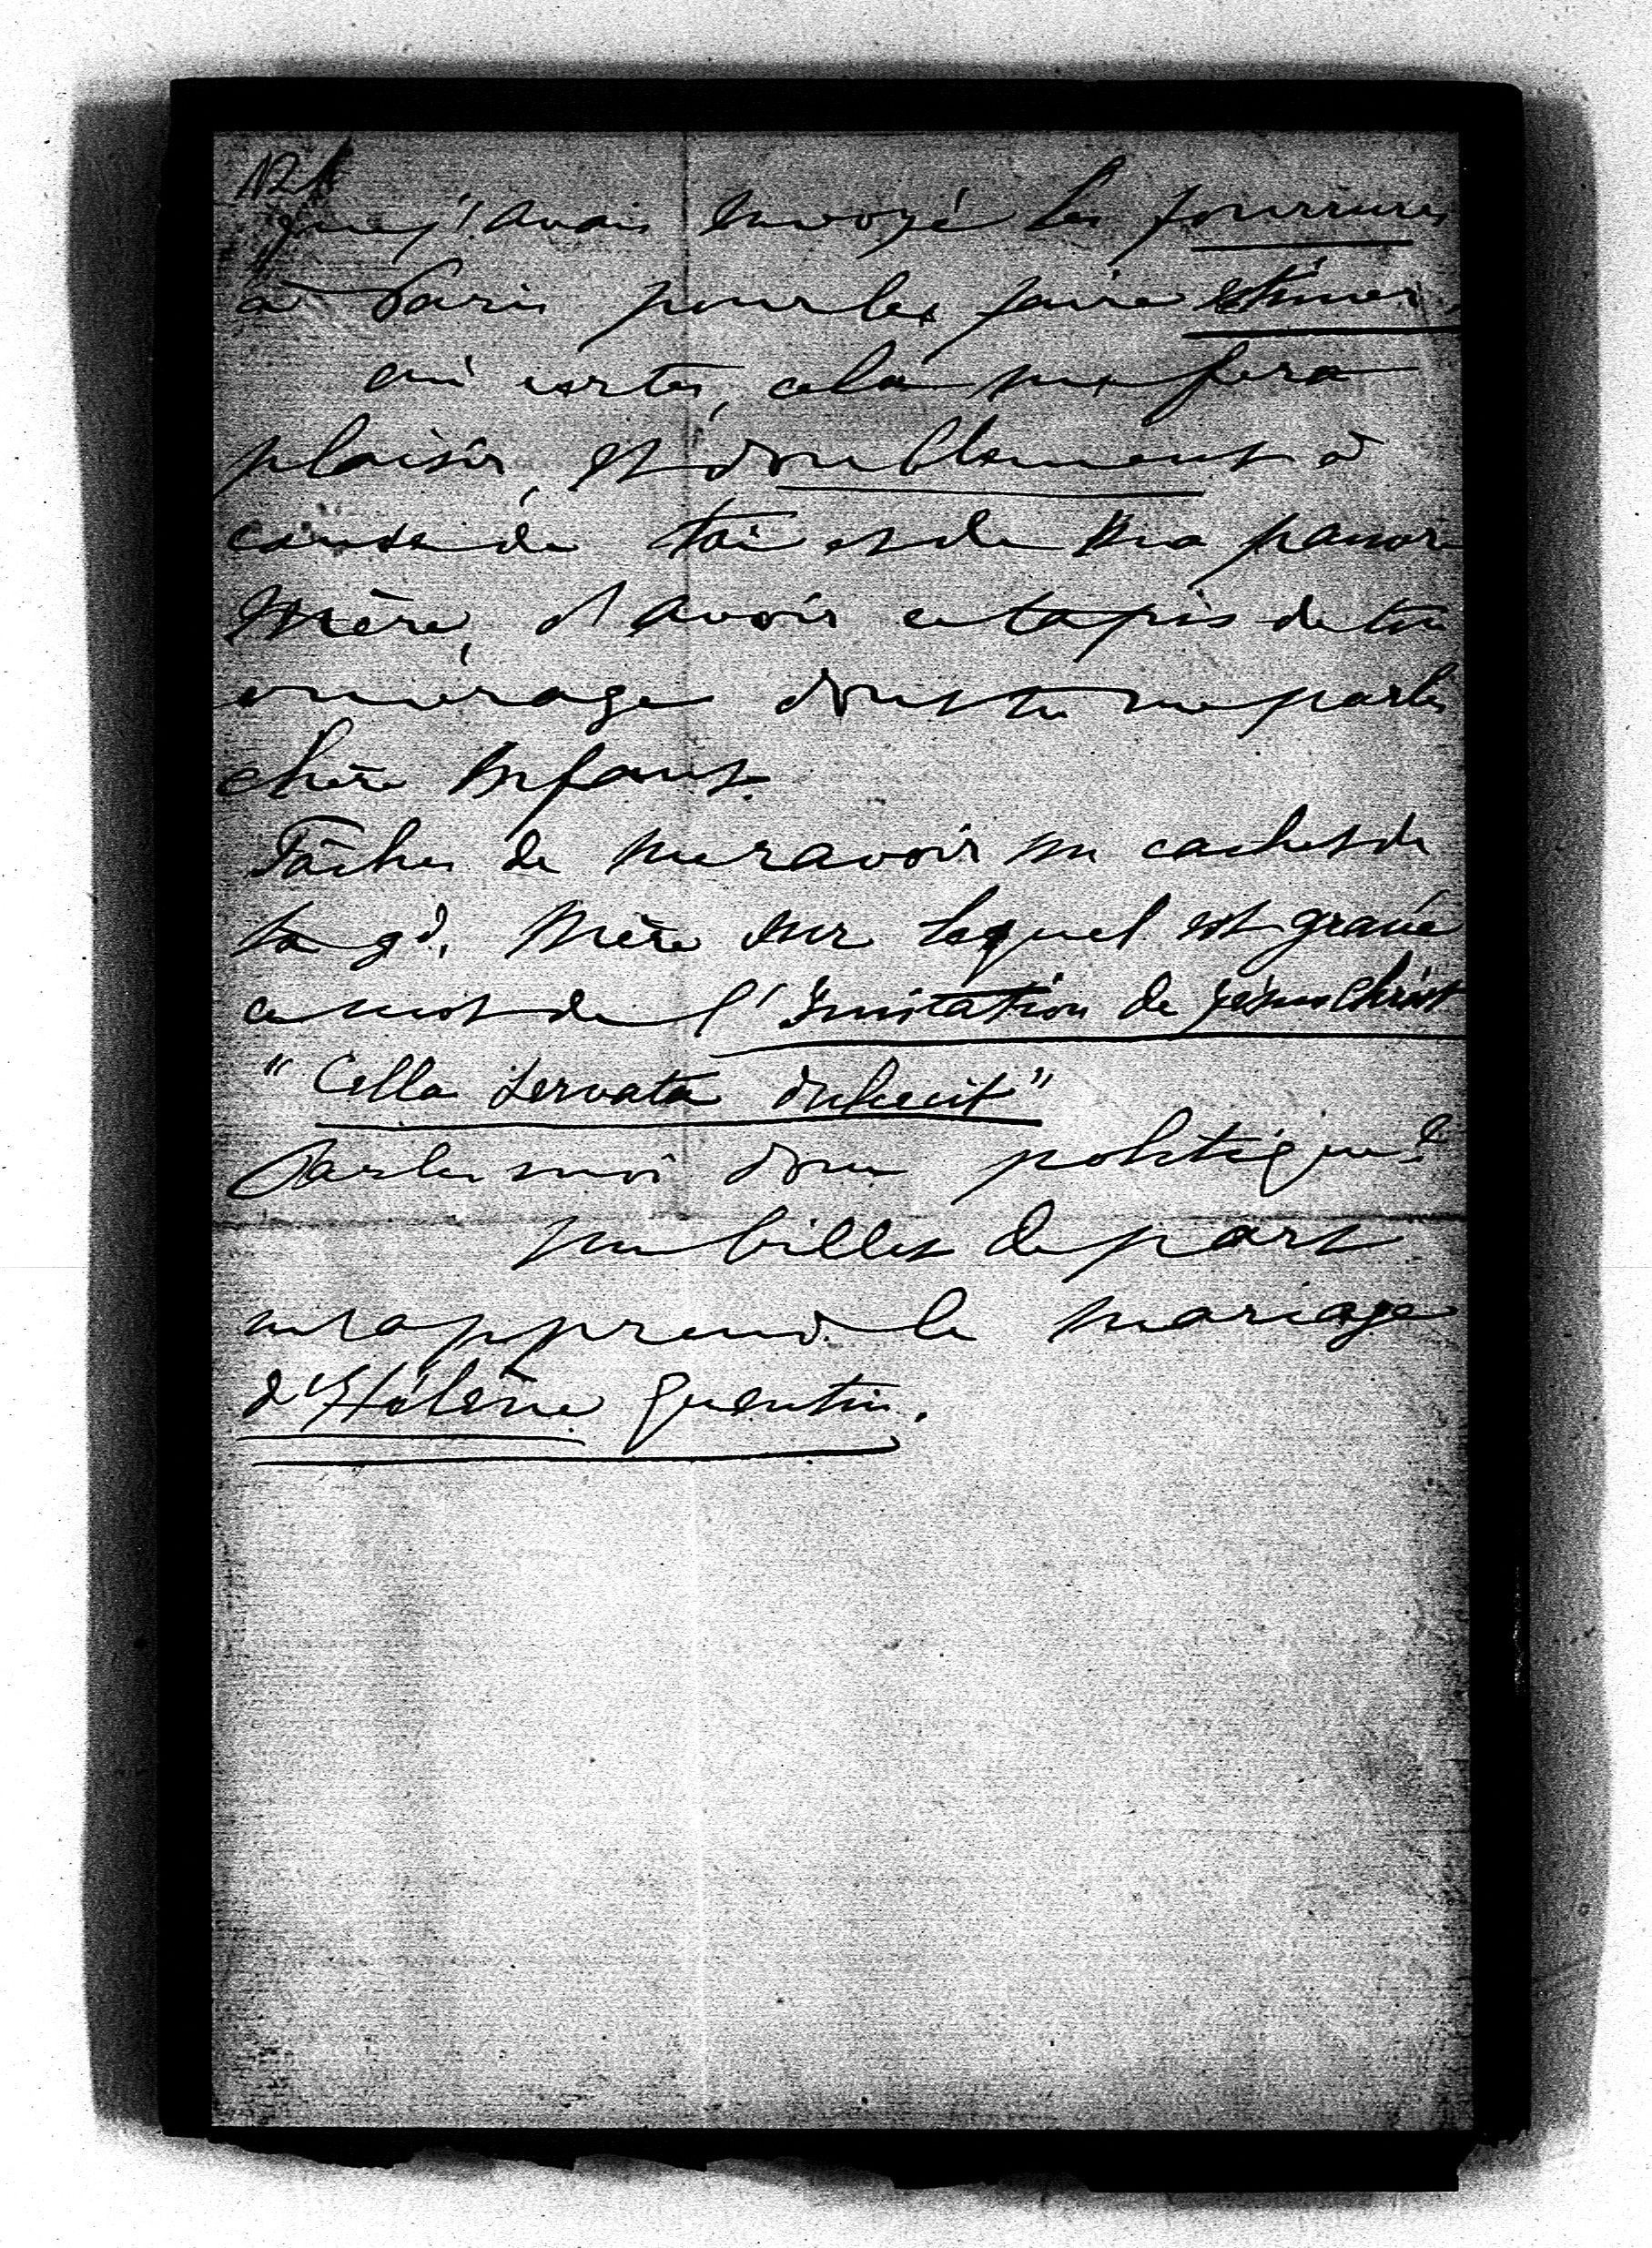 12
que j'avais envoyé les fourrures
à Paris pour les faire estimer.
oui certes, cela me fera
plaisir, et doublement à
cause de toi et de ma pauvre
Mère, d'avoir ce tapis de ton
ouvrage dont tu me parles
chère Enfant.
Tâches de me ravoir un cachet de
ta gd. Mère sur lequel est gravé
ce mot de l'Imitation de Jésus Christ
"Cella servata dulcescit"
Parles moi donc politique?
un billet de part
m'apprend le mariage
d'Hélène Quentin.